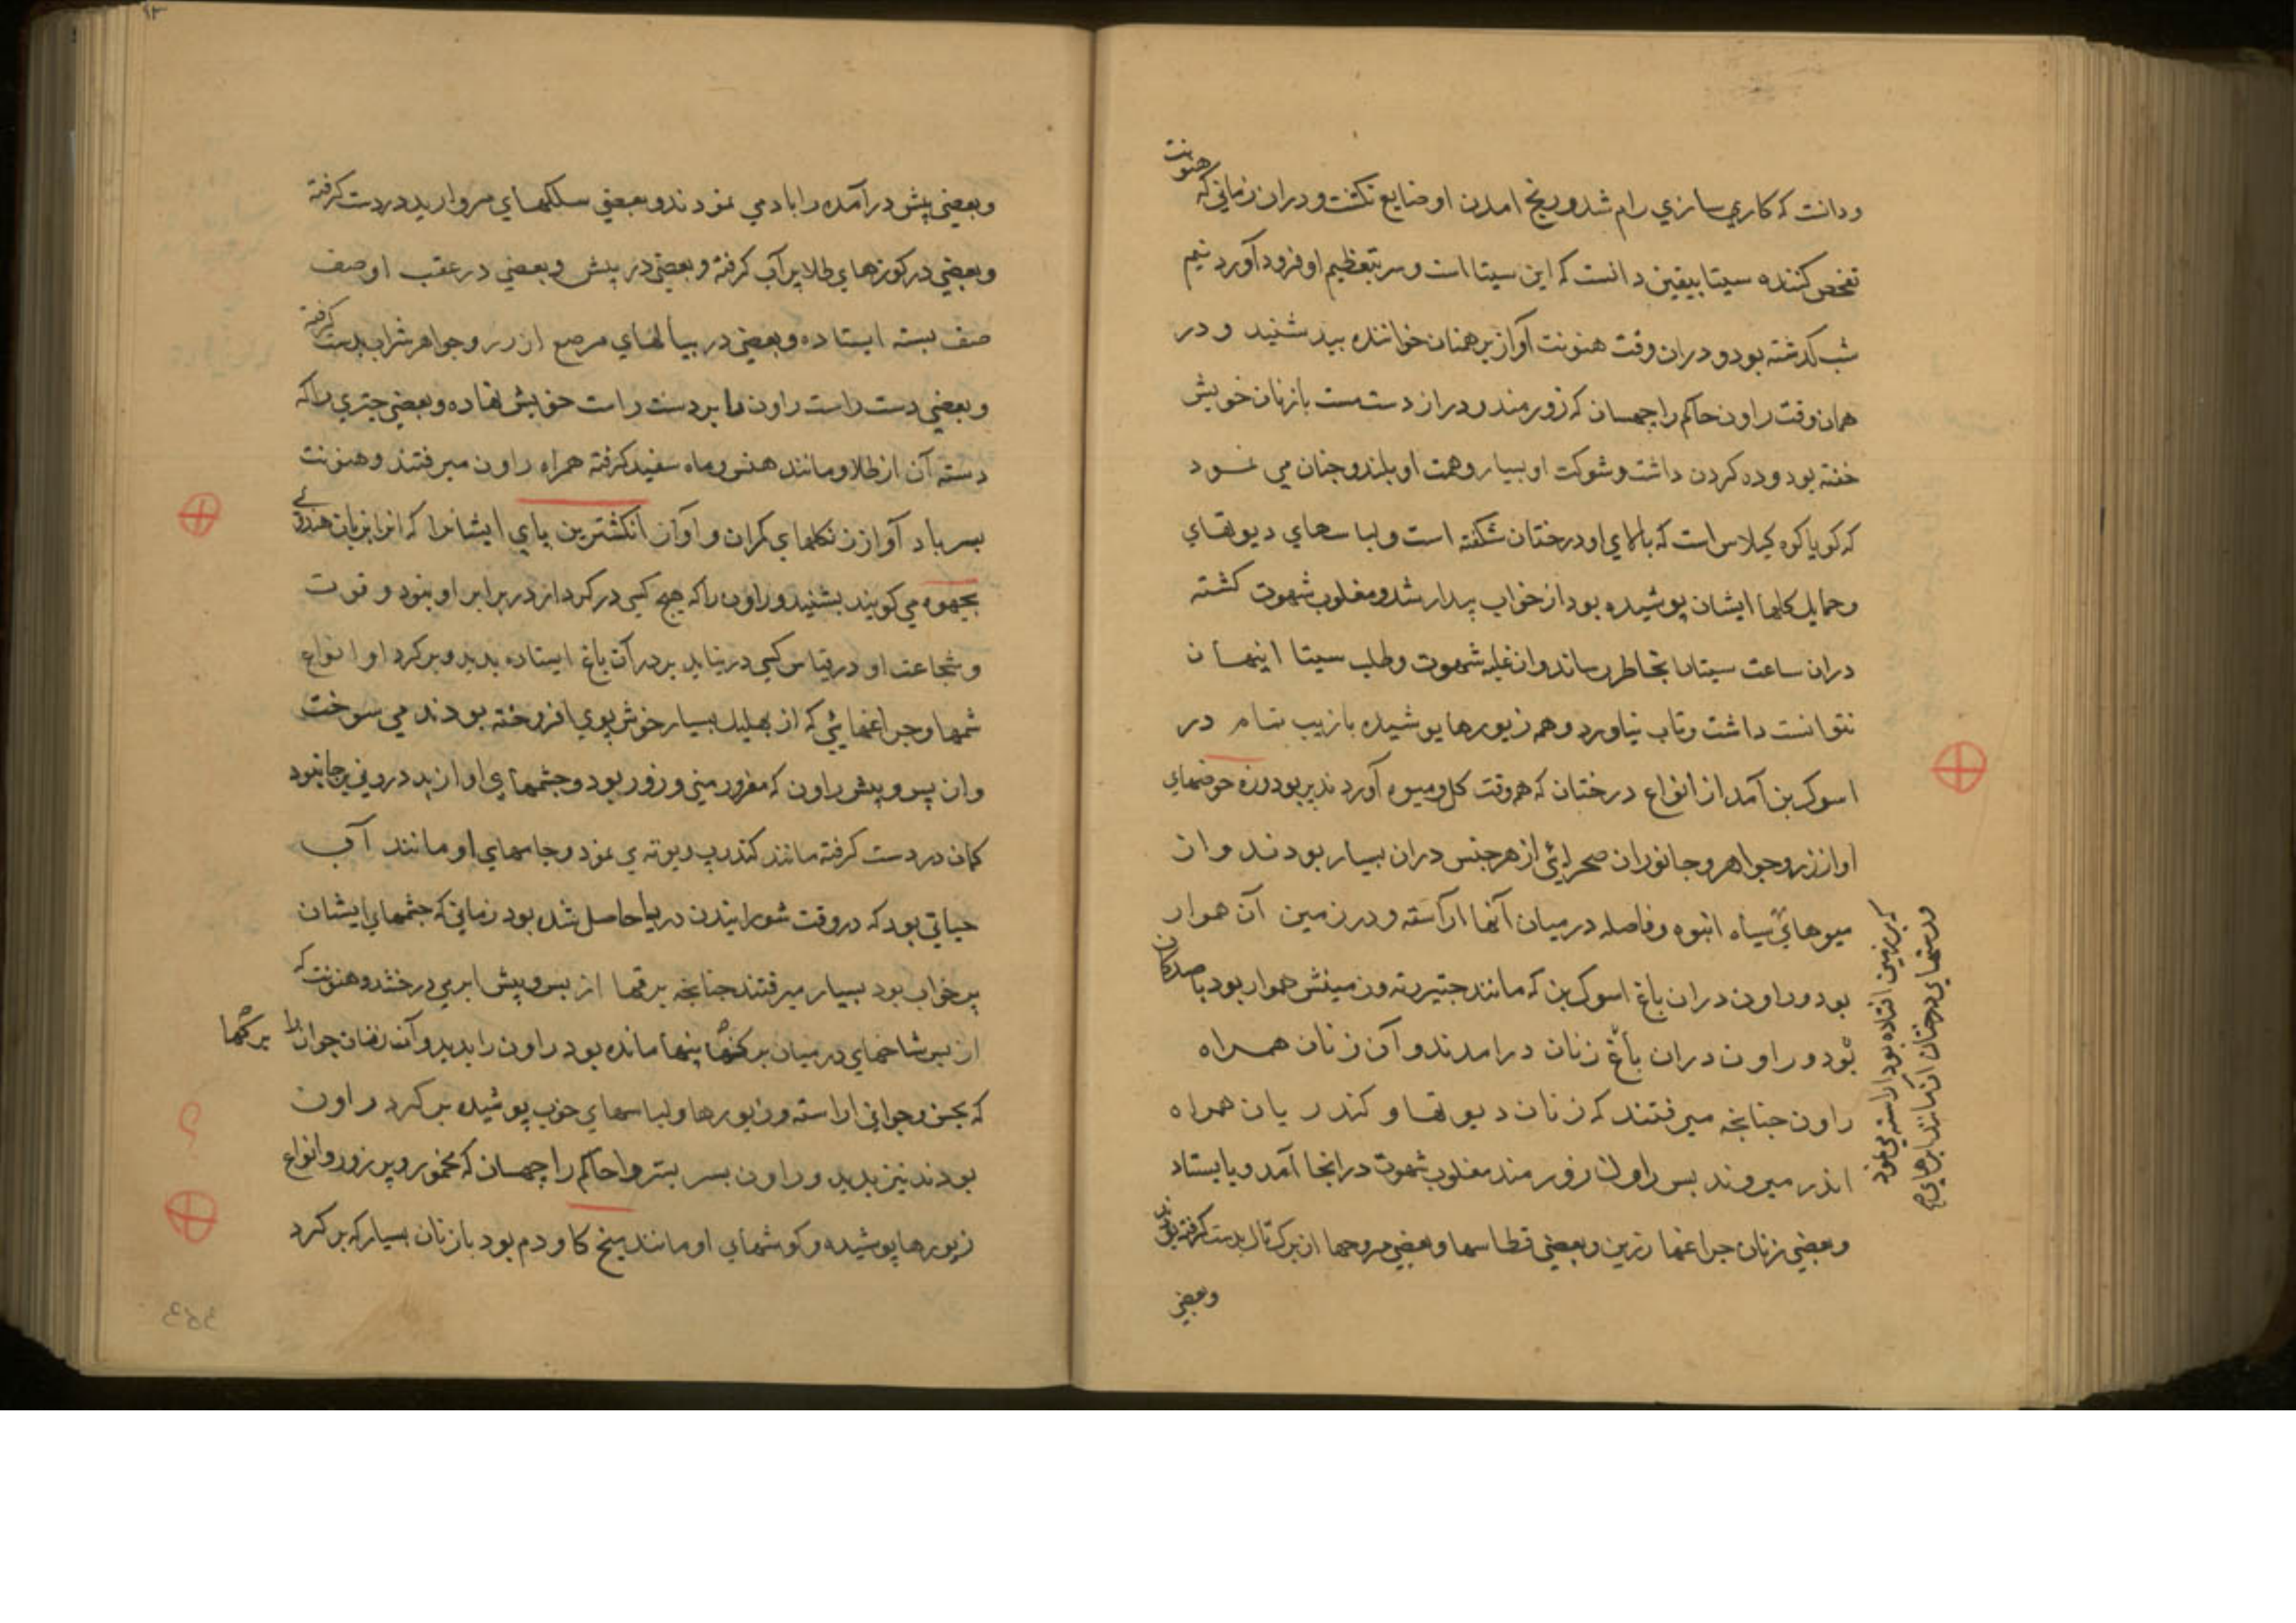 ودانست که کاری سازی رام شد و رنج امدن او ضایع نکشت و دران زمانی که هنونت
تفحص کننده سیتا بیقین دانست که این سیتا است و سر بتعظیم او فرود آورد نیم
شب کذشته بود و دران وقت هنونت آواز برهمنان خواننده بید شنید و در
همان وقت راون حاکم راچهسان که زورمند و دراز دست مست بازنان خویش
خفته بود و ده کردن داشت و شوکت او بسیار و همت او بلند و چنان می نمود
که کویا کوه کیلاس است که بالای او درختان شکفته است و لباسهای دیوتهای
وحمایل کلها ایشان پوشیده بود از خواب بیدار شد و مغلوب شهوت کشته
دران ساعت سیتا را بخاطر رساند و ان غلبه شهوت و طلب سیتا اینهان
نتوانست داشت و تاب نیاورد و همه زیورها پوشیده بازیب تمام در
اسوک بن آمد از انواع درختان که همه وقت کل و میوه آورد ند پر بود و زه حوضهای
او از زر و جواهر و جانوران صحرایی از هر جنس دران بسیار بودند و ان
میوهای سیاه انبوه و فاصله در میان آنها اراسته و در زمین آن هموار
که بر زمین افتاده بود اراسته می نمود
ورستهای درختان ان مانند ابرهای
بود و راون دران باغ اسوک بن که مانند زمینش هموار بود با صد زنان
بود و راون دران باغ زنان درامدند و آن زنان همراه
راون چنانچه میرفتند که زنان دیوتها و کندریان همراه
اندر میروند پس راون زورمند مغلوب شهوت درانجا آمد و بایستاد
و بعضی زنان چراغها زرین و بعضی قطاسها و بعضی مروحها از برک تال بدست کرفته بودند
وبعضی
وبعضی پیش درآمده را باد می نمودند و بعضی سلکهای مروارید در دست کرفته
وبعضی در کوزهای طلا پر آب کرفته و بعضی در پیش و بعضی در عقب او صف
صف بسته ایستاده و بعضی در پیالهای مرصع از زر و جواهر شراب بدست کرفته
وبعضی دست راست راون را بر دست راست خویش نهاده و بعضی چتری را که
دسته آن از طلا و مانند هنس و ماه سفید کرفته همراه راون میرفتند و هنونت
پسر باد آواز زنکلهای کمران و آواز انکشترین پای ایشانرا که انرا بزبان هندوی
بچهوه می کویند بشنید و راون را که هیچ کسی در کردار در برابر او نبود و قوت
و شجاعت او در قیاس کسی در نیاید بر در آن باغ ایستاده بدید و بر کرد او انواع
شمها و چراغهائی که از پهلیل بسیار خوش بوی افروخته بودند می سوخت
وان پس و پیش راون که مغرور منی و زور بود و چشمهای او از بد درونی بر جا نبود
کمان در دست کرفته مانند کندرپ دیوته می نمود و جامهای او مانند آب
حیاتی بود که در وقت شورانیدن دریا حاصل شده بود زمانی که چشمهای ایشان
پر خواب بود بسیار میرفتند چنانچه برقها از پس و پیش ابر می درخشد و هنونت که
از پس شاخهای در میان برکها پنهان مانده بود راون را بدید و آن زنان جوان را
برکها
که بحسن و جوانی اراسته و زیورها و لباسهای خوب پوشیده بر کرد راون
بودند نیز بدید و راون پسر بسروا حاکم راچهسان که مخمور و پر زور و انواع
زیورها پوشیده و کوشهای او مانند میخ کاودم بود بازنان بسیار که بر کرد